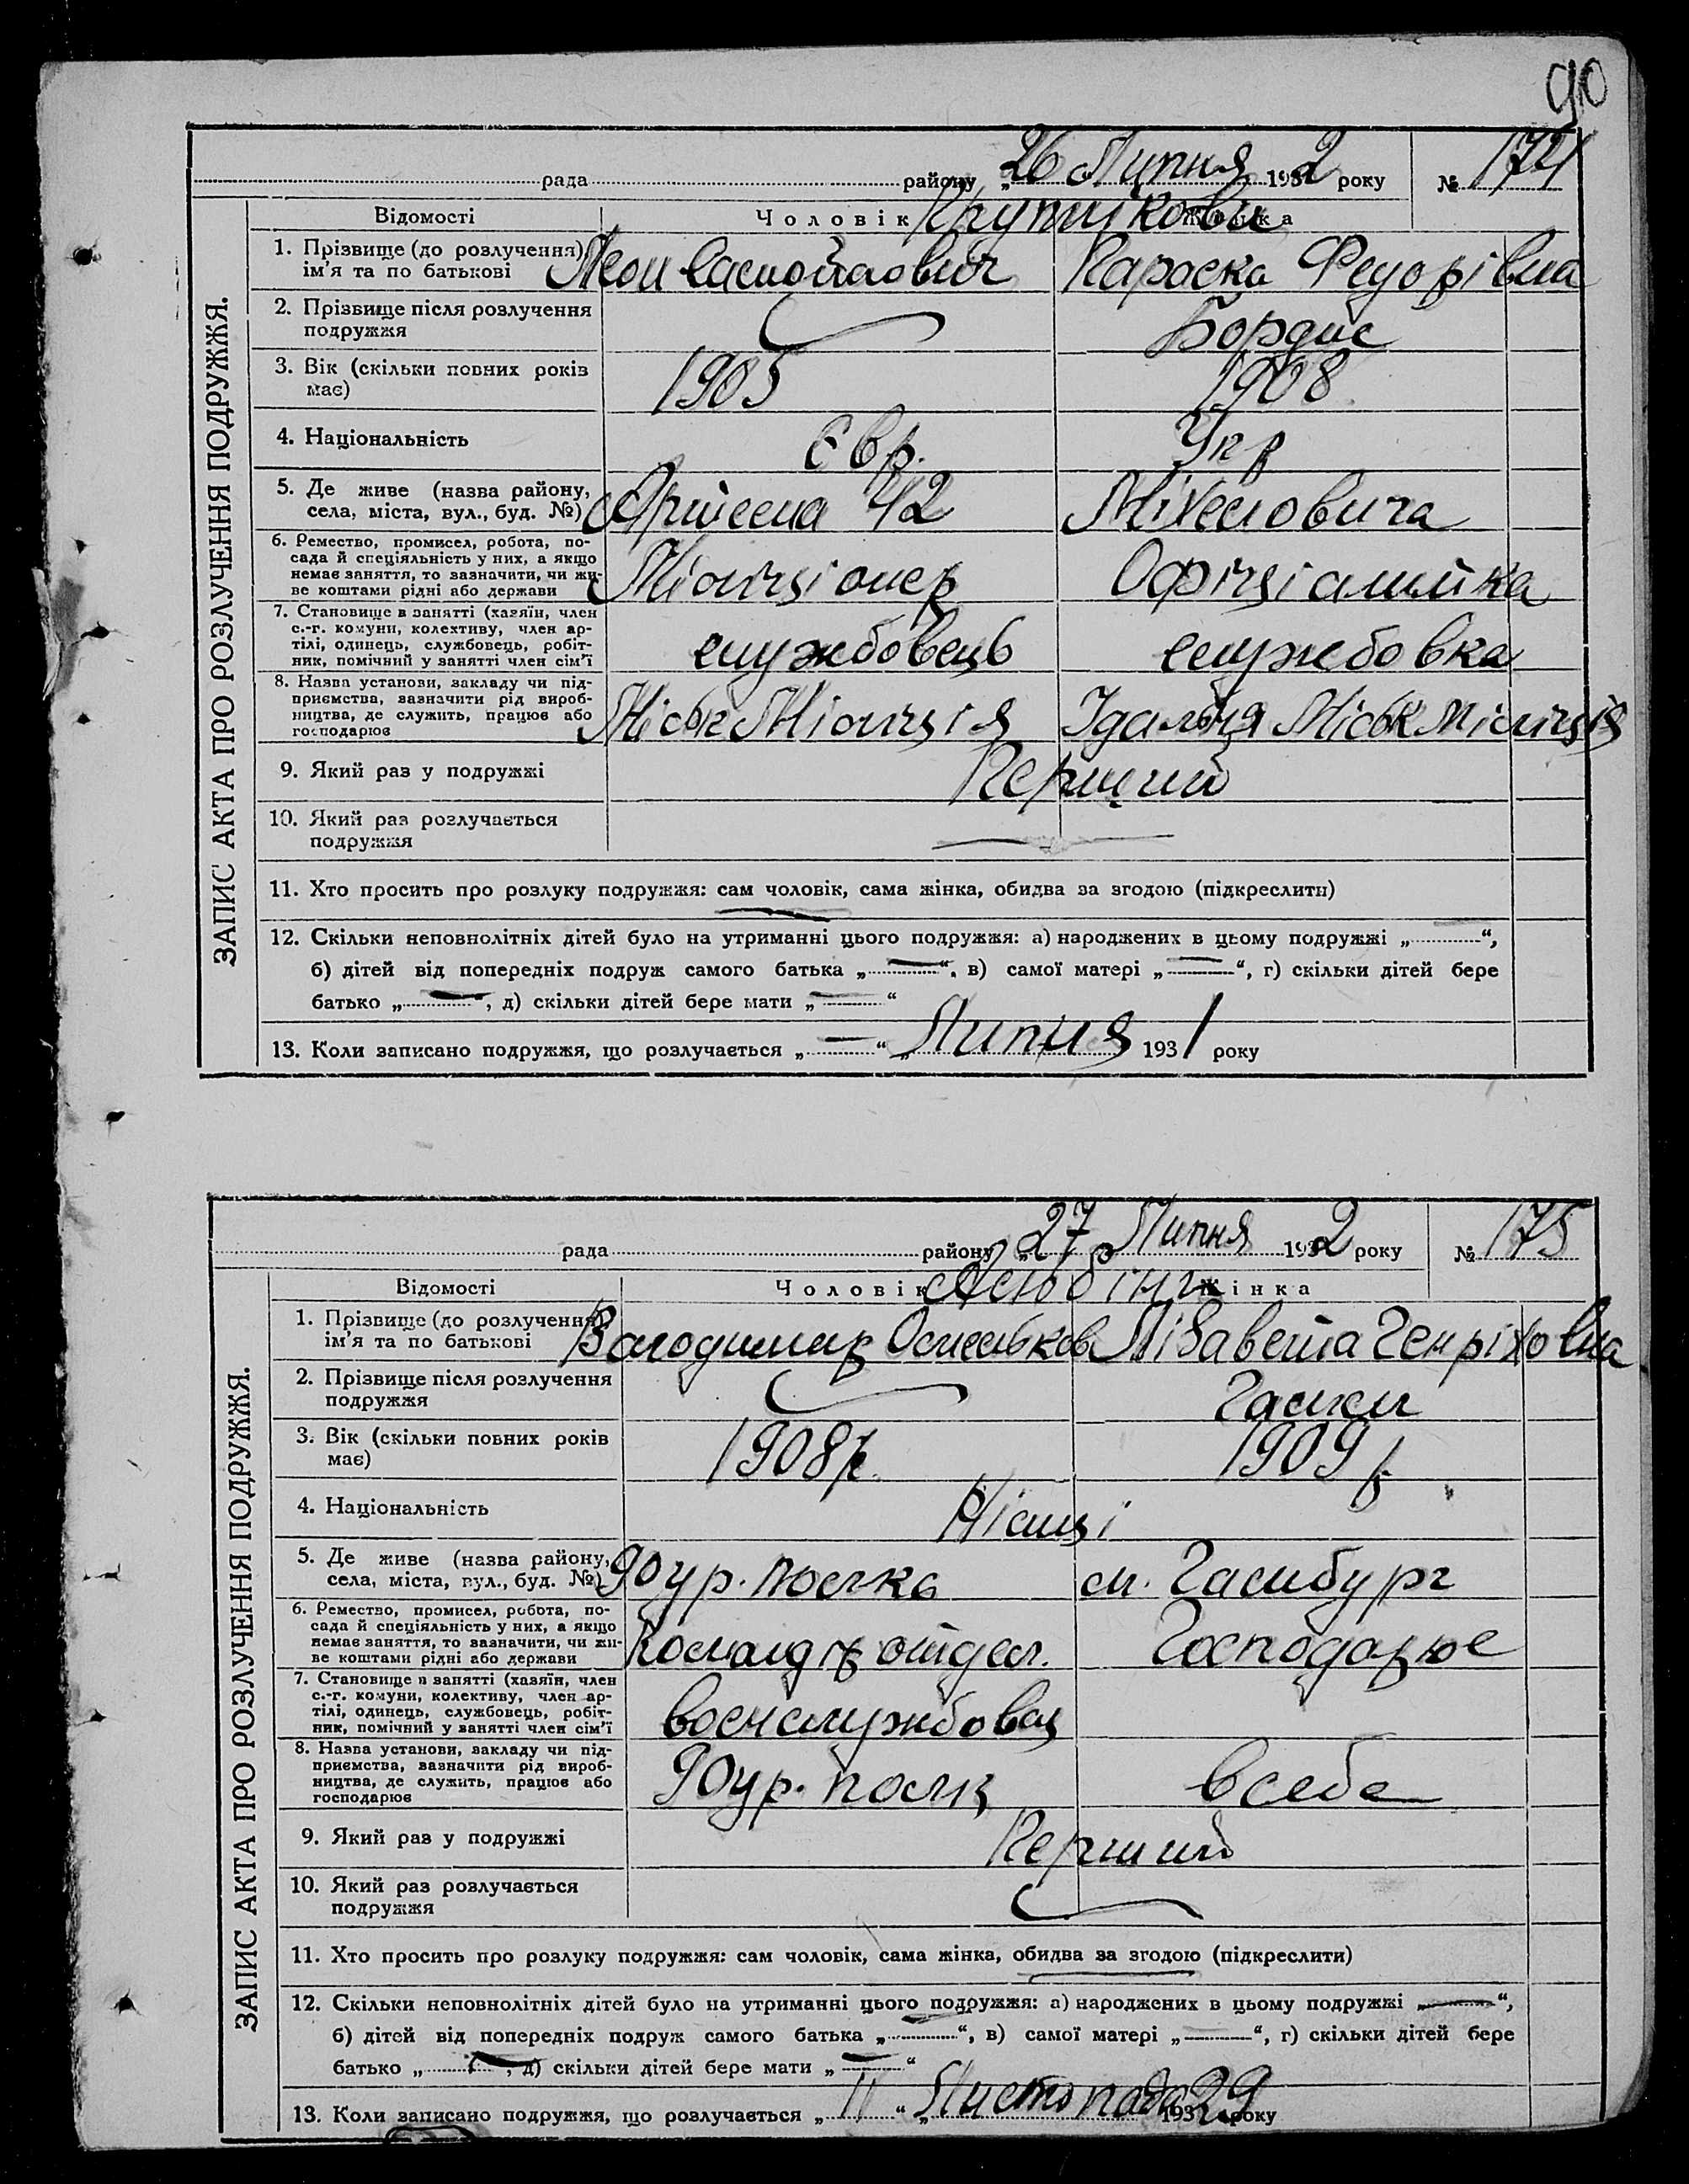 90
ЗАПИС АКТА ПРО РОЗЛУЧЕННЯ ПОДРУЖЖЯ.
рада району „26 Липня 1932 року № 174
Відомості Чоловік Жінка
Крутикови
1. Прізвище (до розлучення), ім'я та по батькові Параска Федорівна
2. Прізвище після розлучення подружжя
3. Вік (скільки повних років має) 1905 1908
4. Національність Євр. Укр
5. Де живе (назва району, села, міста, вул., буд. №) 42 Міхеловича
6. Ремество, промисел, робота, посада й спеціяльність у них, а якщо немає заняття, то зазначити, чи живе коштами рідні або держави Міліціонер Офіціантка
7. Становище в занятті (хазяїн, член с.-г. комуни, колективу, член артілі, одинець, службовець, робітник, помічний у занятті член сім'ї службовець службовка
8. Назва установи, закладу чи підприємства, зазначити рід виробництва, де служить, працює або господарює Міськ Міліція Їдальня Міськміліція
9. Який раз у подружжі Перший
10. Який раз розлучається подружжя
11. Хто просить про розлуку подружжя: сам чоловік, сама жінка, обидва за згодою (підкреслити)
12. Скільки неповнолітніх дітей було на утриманні цього подружжя: а) народжених в цьому подружжі „ — “,
б) дітей від попередніх подруж самого батька „ — “, в) самої матері „ — “, г) скільки дітей бере
батько „ — “, д) скільки дітей бере мати „ — “
13. Коли записано подружжя, що розлучається „ — “ „ Липня 1931 року
ЗАПИС АКТА ПРО РОЗЛУЧЕННЯ ПОДРУЖЖЯ.
рада району „27 Липня 1932 року № 175
Відомості Чоловік Жінка
1. Прізвище (до розлучення) ім'я та по батькові Володимир Лізавета Генріховна
2. Прізвище після розлучення подружжя
3. Вік (скільки повних років має) 1908р. 1909 р.
4. Національність Німці
5. Де живе (назва району, села, міста, вул., буд. №) 90 ур. полка
6. Ремество, промисел, робота, посада й спеціяльність у них, а якщо немає заняття, то зазначити, чи живе коштами рідні або держави Команд отдел. Господарює
7. Становище в занятті (хазяїн, член с.-г. комуни, колективу, член артілі, одинець, службовець, робітник, помічний у занятті член сім'ї воєнслужбовец
8. Назва установи, закладу чи підприємства, зазначити рід виробництва, де служить, працює або господарює 90 ур. полк в себе
9. Який раз у подружжі Перший
10. Який раз розлучається подружжя
11. Хто просить про розлуку подружжя: сам чоловік, сама жінка, обидва за згодою (підкреслити)
12. Скільки неповнолітніх дітей було на утриманні цього подружжя: а) народжених в цьому подружжі „ — “,
б) дітей від попередніх подруж самого батька „ — “, в) самої матері „ — “, г) скільки дітей бере
батько „ — “, д) скільки дітей бере мати „ — “
13. Коли записано подружжя, що розлучається „ 11 “ „ Листопада 29 року